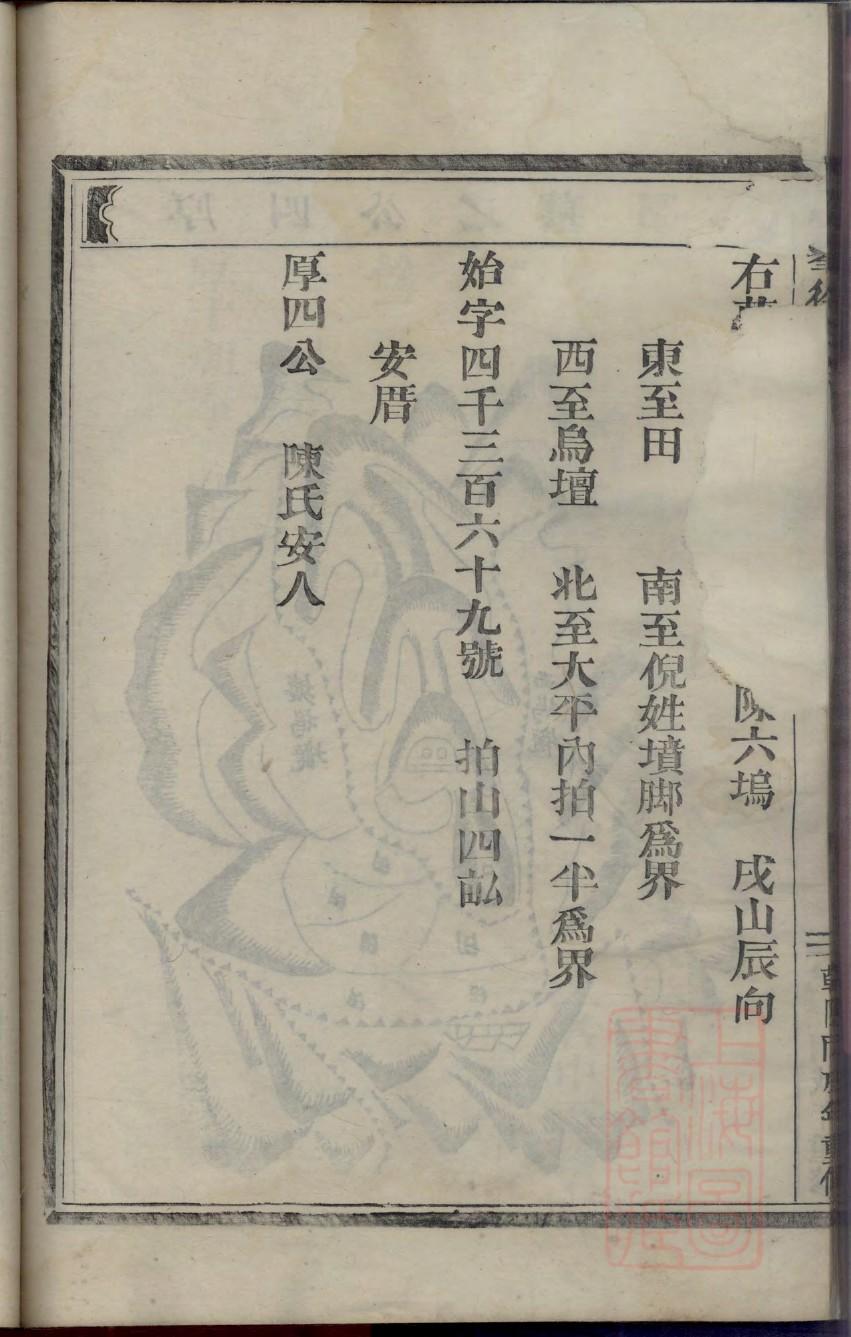 右
陳六塢 戌山辰向
東至田 南至倪姓墳脚爲界
西至烏壇 北至大平內拍一半爲界
始字四千三百六十九號 拍山四畝
安厝
厚四公 陳氏安人
上海圖書館藏